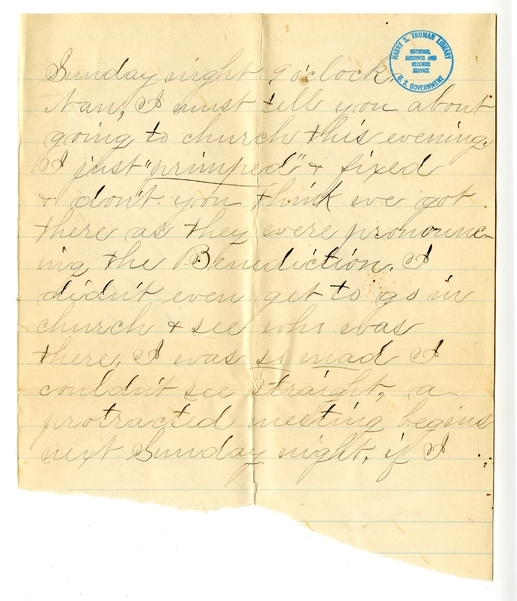 HARRY S. TRUMAN LIBRARY
NATIONAL
ARCHIVES AND
RECORDS
SERVICE
U.S. GOVERNMENT
Sunday night 9 o'clock.
Nan, I must tell you about
going to church this evening.
I just "primped" & fixed
& don't you think we got
there as they were pronounc-
ing the Benediction. I
didn't even get to go in
church & see who was
there. I was so mad I
couldn't see straight, a
protracted meeting begins
next Sunday night, if I